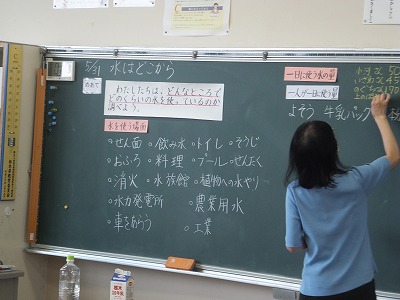 5/21 水はどこから
めあて
わたしたちは、どんなところで
どのくらいの水を使っているのか
調べよう。
水を使う場面
○せん面 ○飲み水 ○トイレ ○そうじ
○おふろ ○料理 ○プール ○せんたく
○消火 ○水族館 ○植物への水やり…
○水力発電所 ○農業用水
○車をあらう ○工業
一日に使う水の量
一人が一日に使う量
よそう 牛乳パック